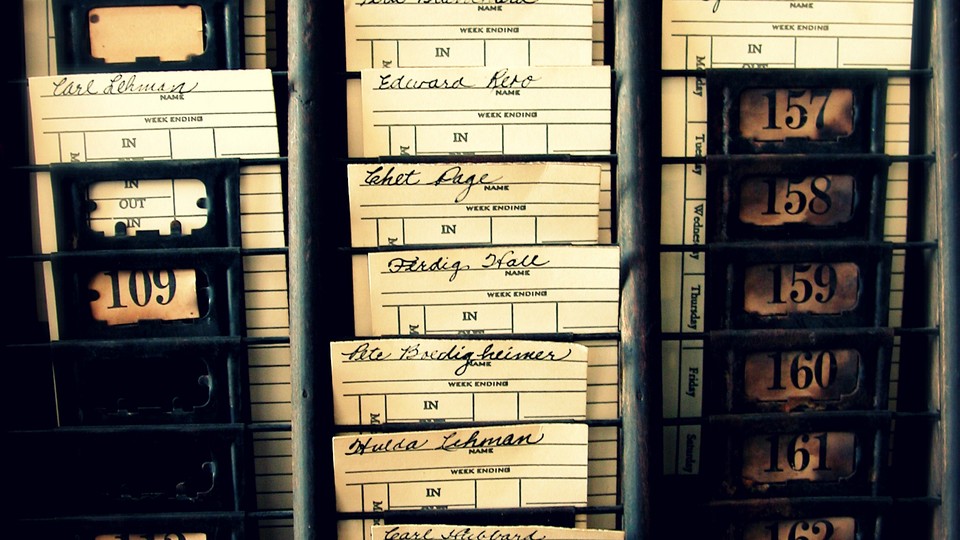 Carl Lehman
NAME
WEEK ENDING
IN
IN
OUT
IN
109
NAME
WEEK ENDING
IN
Edward Rero
NAME
WEEK ENDING
IN
Chet Page
NAME
WEEK ENDING
IN
Ferdig Hall
NAME
WEEK ENDING
IN
Pete Boedigheimer
NAME
WEEK ENDING
IN
Hulda Lehman
NAME
WEEK ENDING
IN
Carl Hibbard
NAME
WEEK ENDING
IN
OUT
Monday
Tuesday
Wednesday
Thursday
Friday
Saturday
157
158
159
160
161
162